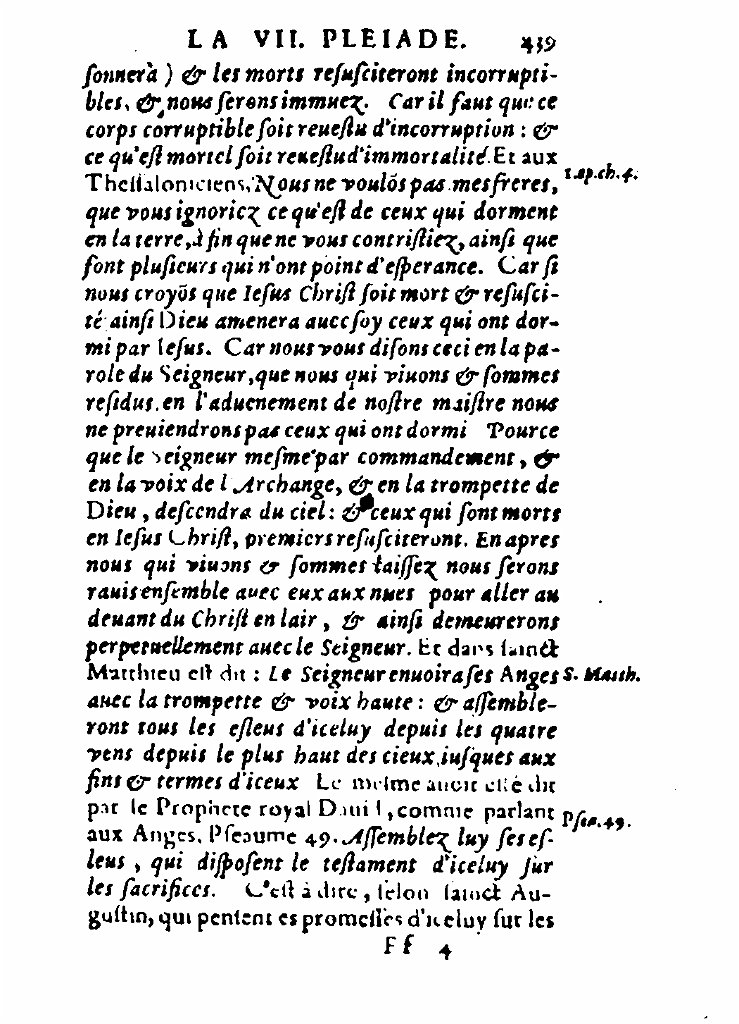 LA VII. PLEIADE. 439
ſonnera ) & les morts reſuſciteront incorrupti-
bles, & nous ſerons immuez. Car il faut que ce
corps corruptible ſoit reueſtu d'incorruption : &
ce qu'eſt mortel ſoit reueſtu d'immortalité. Et aux
Theſſaloniciens, Nous ne voulõs pas mes freres, 1. ap. ch. 4.
que vous ignoriez ce qu'eſt de ceux qui dorment
en la terre, à fin que ne vous contriſtiez, ainſi que
font pluſieurs qui n'ont point d'eſperance. Car ſi
nous croyõs que Ieſus Chriſt ſoit mort & reſuſci-
té ainſi Dieu amenera auec ſoy ceux qui ont dor-
mi par Ieſus. Car nous vous diſons ceci en la pa-
role du Seigneur, que nous qui viuons & ſommes
reſidus. en l'aduenement de noſtre maiſtre nous
ne preuiendrons pas ceux qui ont dormi Pource
que le Seigneur meſme par commandement, &
en la voix de l'Archange, & en la trompette de
Dieu, deſcendra du ciel : & ceux qui ſont morts
en Ieſus Chriſt, premiers reſuſciteront. En apres
nous qui viuons & ſommes laiſſez nous ſerons
rauis enſemble auec eux aux nues pour aller au
deuant du Chriſt en lair, & ainſi demeurerons
perpetuellement auec le Seigneur. Et dans ſainct
Matthieu eſt dit : Le Seigneur enuoira ſes Anges S. Matth.
auec la trompette & voix haute : & aſſemble-
ront tous les eſleus d'iceluy depuis les quatre
vens depuis le plus haut des cieux, iuſques aux
fins & termes d'iceux Le meſme auoit eſté dit
par le Prophete royal Dauid, comme parlant
aux Anges, Pſeaume 49. Aſſemblez luy ſes eſ- Pſea. 49.
leus, qui diſpoſent le teſtament d'iceluy ſur
les ſacrifices. C'eſt à dire, ſelon ſainct Au-
guſtin, qui penſent es promeſſes d'iceluy ſur les
Ff 4